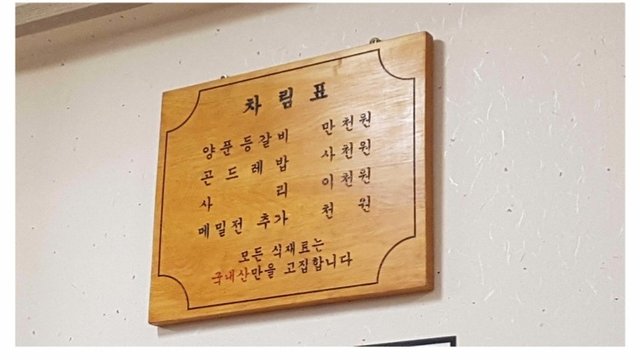 차림표
양푼등갈비 만천원
곤드레밥 사천원
사리 이천원
메밀전 추가 천원
모든 식재료는
국내산만을 고집합니다